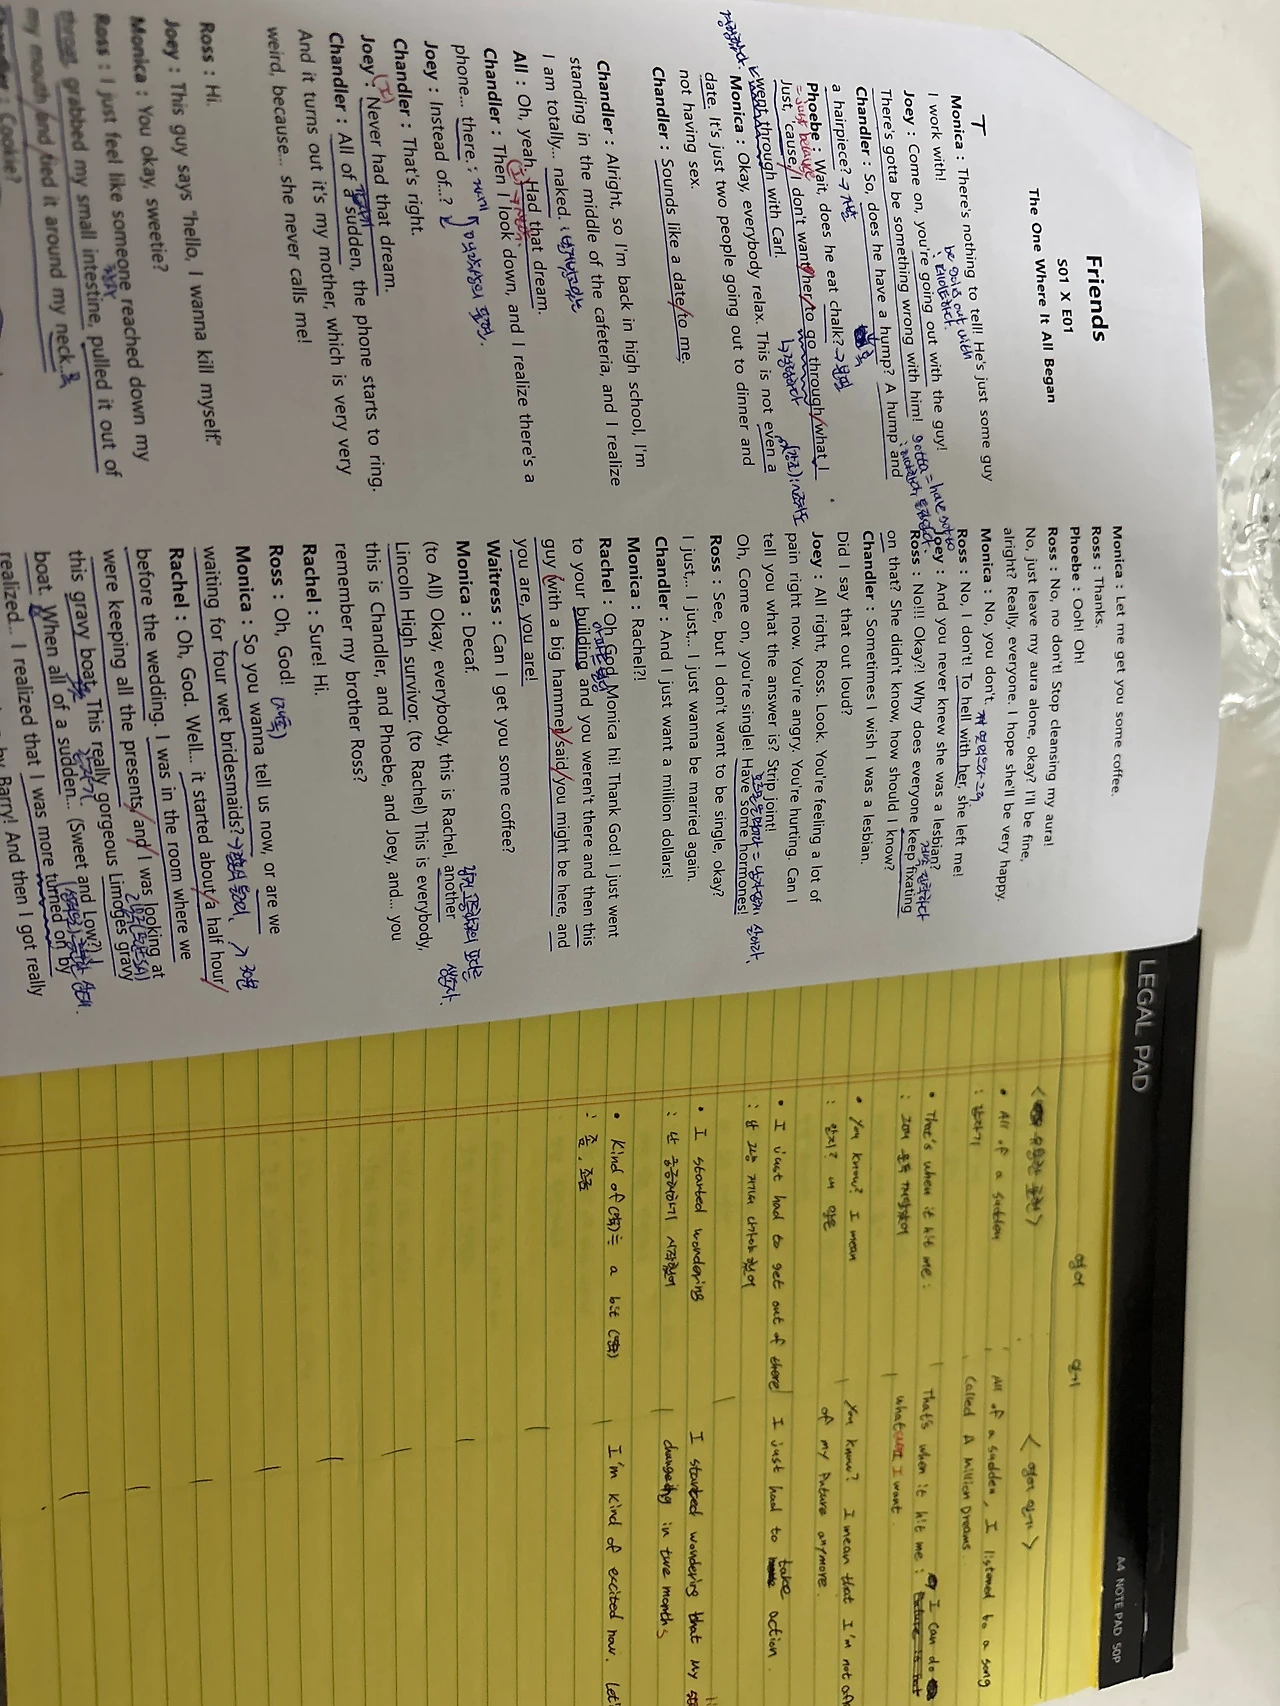 Friends
S01 X E01
The One Where It All Began
Monica : There's nothing to tell! He's just some guy
I work with!
be going out with
: 데이트하다.
Joey : Come on, you're going out with the guy!
There's gotta be something wrong with him!
gotta = have got to
Chandler : So, does he have a hump? A hump and
a hairpiece? → 가발
Phoebe : Wait, does he eat chalk? → 분필
= just because
Just, 'cause, I don't want her to go through what I
went through with Carl.
↳ 경험하다
Monica : Okay, everybody relax. This is not even a
date. It's just two people going out to dinner and
not having sex.
Chandler : Sounds like a date to me.
Chandler : Alright, so I'm back in high school, I'm
standing in the middle of the cafeteria, and I realize
I am totally... naked.
All : Oh, yeah. Had that dream.
(I)
Chandler : Then I look down, and I realize there's a
phone... there.
Joey : Instead of...?
Chandler : That's right.
(I)
Joey : Never had that dream.
Chandler : All of a sudden, the phone starts to ring.
And it turns out it's my mother, which is very very
weird, because... she never calls me!
Ross : Hi.
Joey : This guy says "hello, I wanna kill myself."
Monica : You okay, sweetie?
Ross : I just feel like someone reached down my
throat, grabbed my small intestine, pulled it out of
my mouth and tied it around my neck...
Chandler : Cookie?
Monica : Let me get you some coffee.
Ross : Thanks.
Phoebe : Ooh! Oh!
Ross : No, no don't! Stop cleansing my aura!
No, just leave my aura alone, okay? I'll be fine,
alright? Really, everyone. I hope she'll be very happy.
Monica : No, you don't.
Ross : No, I don't! To hell with her, she left me!
Joey : And you never knew she was a lesbian?
Ross : No!! Okay?! Why does everyone keep fixating
on that? She didn't know, how should I know?
Chandler : Sometimes I wish I was a lesbian.
Did I say that out loud?
Joey : All right, Ross. Look. You're feeling a lot of
pain right now. You're angry. You're hurting. Can I
tell you what the answer is? Strip joint!
Oh, Come on, you're single! Have some hormones!
Ross : See, but I don't want to be single, okay?
I just... I just... I just wanna be married again.
Chandler : And I just want a million dollars!
Monica : Rachel?!
Rachel : Oh God, Monica hi! Thank God! I just went
to your building and you weren't there and then this
guy with a big hammer said you might be here, and
you are, you are!
Waitress : Can I get you some coffee?
Monica : Decaf.
(to All) Okay, everybody, this is Rachel, another
Lincoln High survivor. (to Rachel) This is everybody,
this is Chandler, and Phoebe, and Joey, and... you
remember my brother Ross?
Rachel : Sure! Hi.
Ross : Oh, God!
Monica : So you wanna tell us now, or are we
waiting for four wet bridesmaids?
Rachel : Oh, God. Well... it started about a half hour
before the wedding. I was in the room where we
were keeping all the presents, and I was looking at
this gravy boat. This really gorgeous Limoges gravy
boat. When all of a sudden... (Sweet and Low?) I
realized... I realized that I was more turned on by
by Barry! And then I got really
LEGAL PAD
A4 NOTE PAD 50P
영어
암기
• All of a sudden
: 갑자기
• That's when it hit me :
: 그때 문득 깨달았어
• You know? I mean
: 알지? 내 말은
• I just had to get out of there
: 난 그냥 거기서 나가야 했어
• I started wondering
: 난 궁금해하기 시작했어
• kind of ≒ a bit
: 좀, 조금
<영어 암기>
All of a sudden, I listened to a song
called A Million Dreams.
That's when it hit me : I can do
what I want.
You know? I mean that I'm not
of my future anymore.
I just had to take action.
I started wondering that my
changing in two months
I'm kind of excited now.